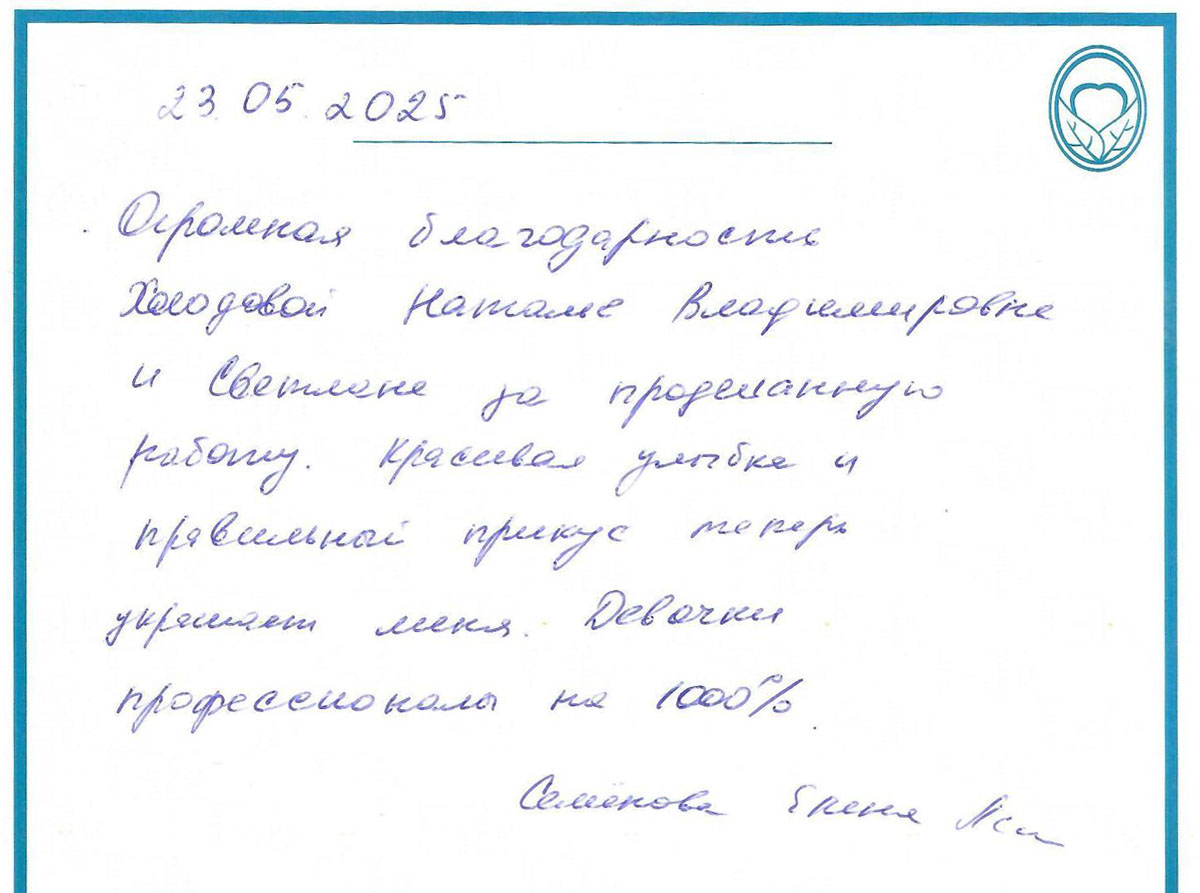 23.05.2025
Огромная благодарность
Холодовой Наталье Владимировне
и Светлане за проделанную
работу. Красивая улыбка и
правильный прикус теперь
украшает меня. Девочки
профессионалы на 1000%.
Семёнова